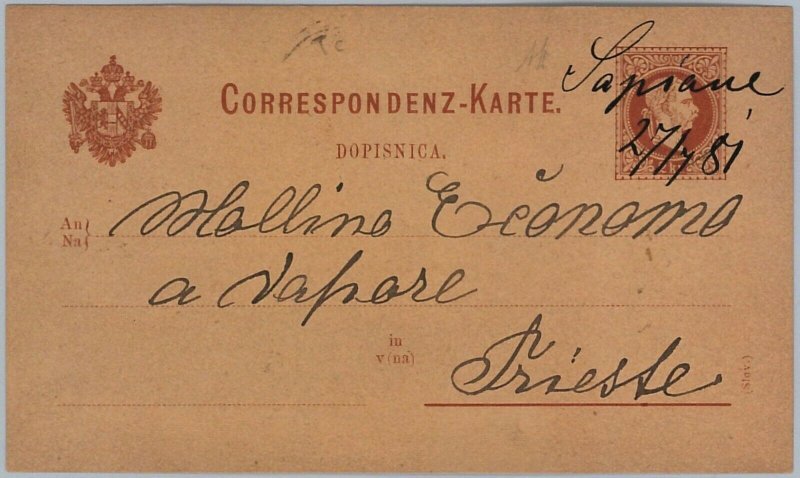 Sapiane
27/7 81
CORRESPONDENZ-KARTE.
DOPISNICA.
An
Na
Mollino Economo
a Vapore
in
v(na)
Trieste
(Slov.)